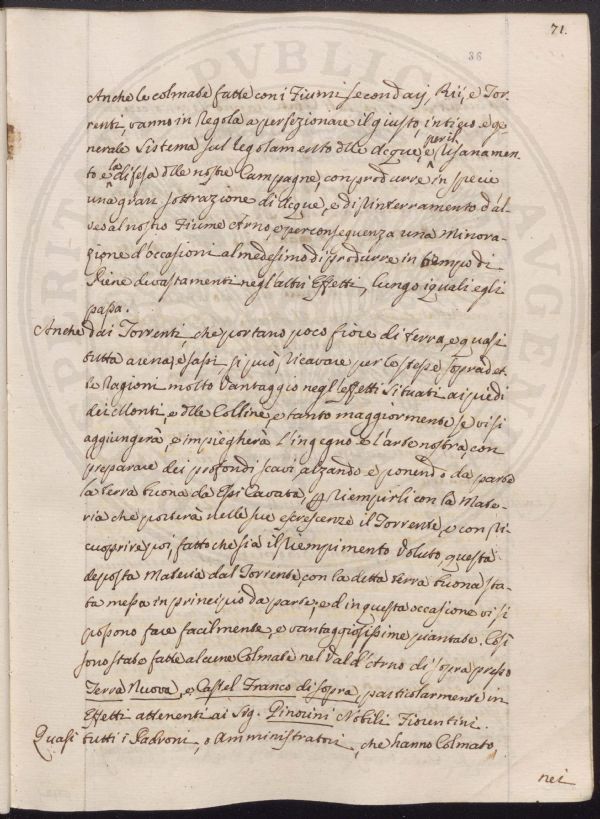 71.
36
Anche le colmate fatte con i Fiumi secondarj, Rii, e Tor-
renti, vanno in regola a perfezionare il giusto, intiero e ge-
nerale sistema sul regolamento dlle Acque, e per il risanamen-
to e la difesa dlle nostre Campagne, con produrre in specie
una gran sottrazione di Acque, e disinterramento d'al-
veo al nostro Fiume Arno, e per conseguenza una minora-
zione d'occasioni al medesimo di produrre in tempo di
Piene devastamenti negl'altri Effetti, lungo i quali egli
passa.
Anche dai Torrenti, che portano poco fiore di terra, e quasi
tutta arena, e sassi, si può ricavare per le stesse sopradet-
te ragioni molto vantaggio negl'effetti situati ai piedi
dei Monti, e dlle Colline, e tanto maggiormente se vi si
aggiungerà, e impiegherà l'ingegno e l'arte nostra con
preparare dei profondi scavi, alzando e ponendo da parte
la terra buona da Essi Cavata, p riempirli con la Mate-
ria che porterà nelle sue escrescenze il Torrente, e con ri-
cuoprire poi, fatto che sia il riempimento voluto, questa
deposta Materia dal Torrente, con la detta terra buona sta-
ta messa in principio da parte, e d in questa occasione vi si
possono fare facilmente, e vantaggiosissime piantate. Così
sono state fatte alcune Colmate nel Val d'Arno di sopra presso
Terra Nuova, e Castel Franco di sopra, particolarmente in
Effetti attenenti ai Sig. Pinorini Nobili Fiorentini.
Quasi tutti i Padroni, o Amministratori, che hanno Colmato,
nei